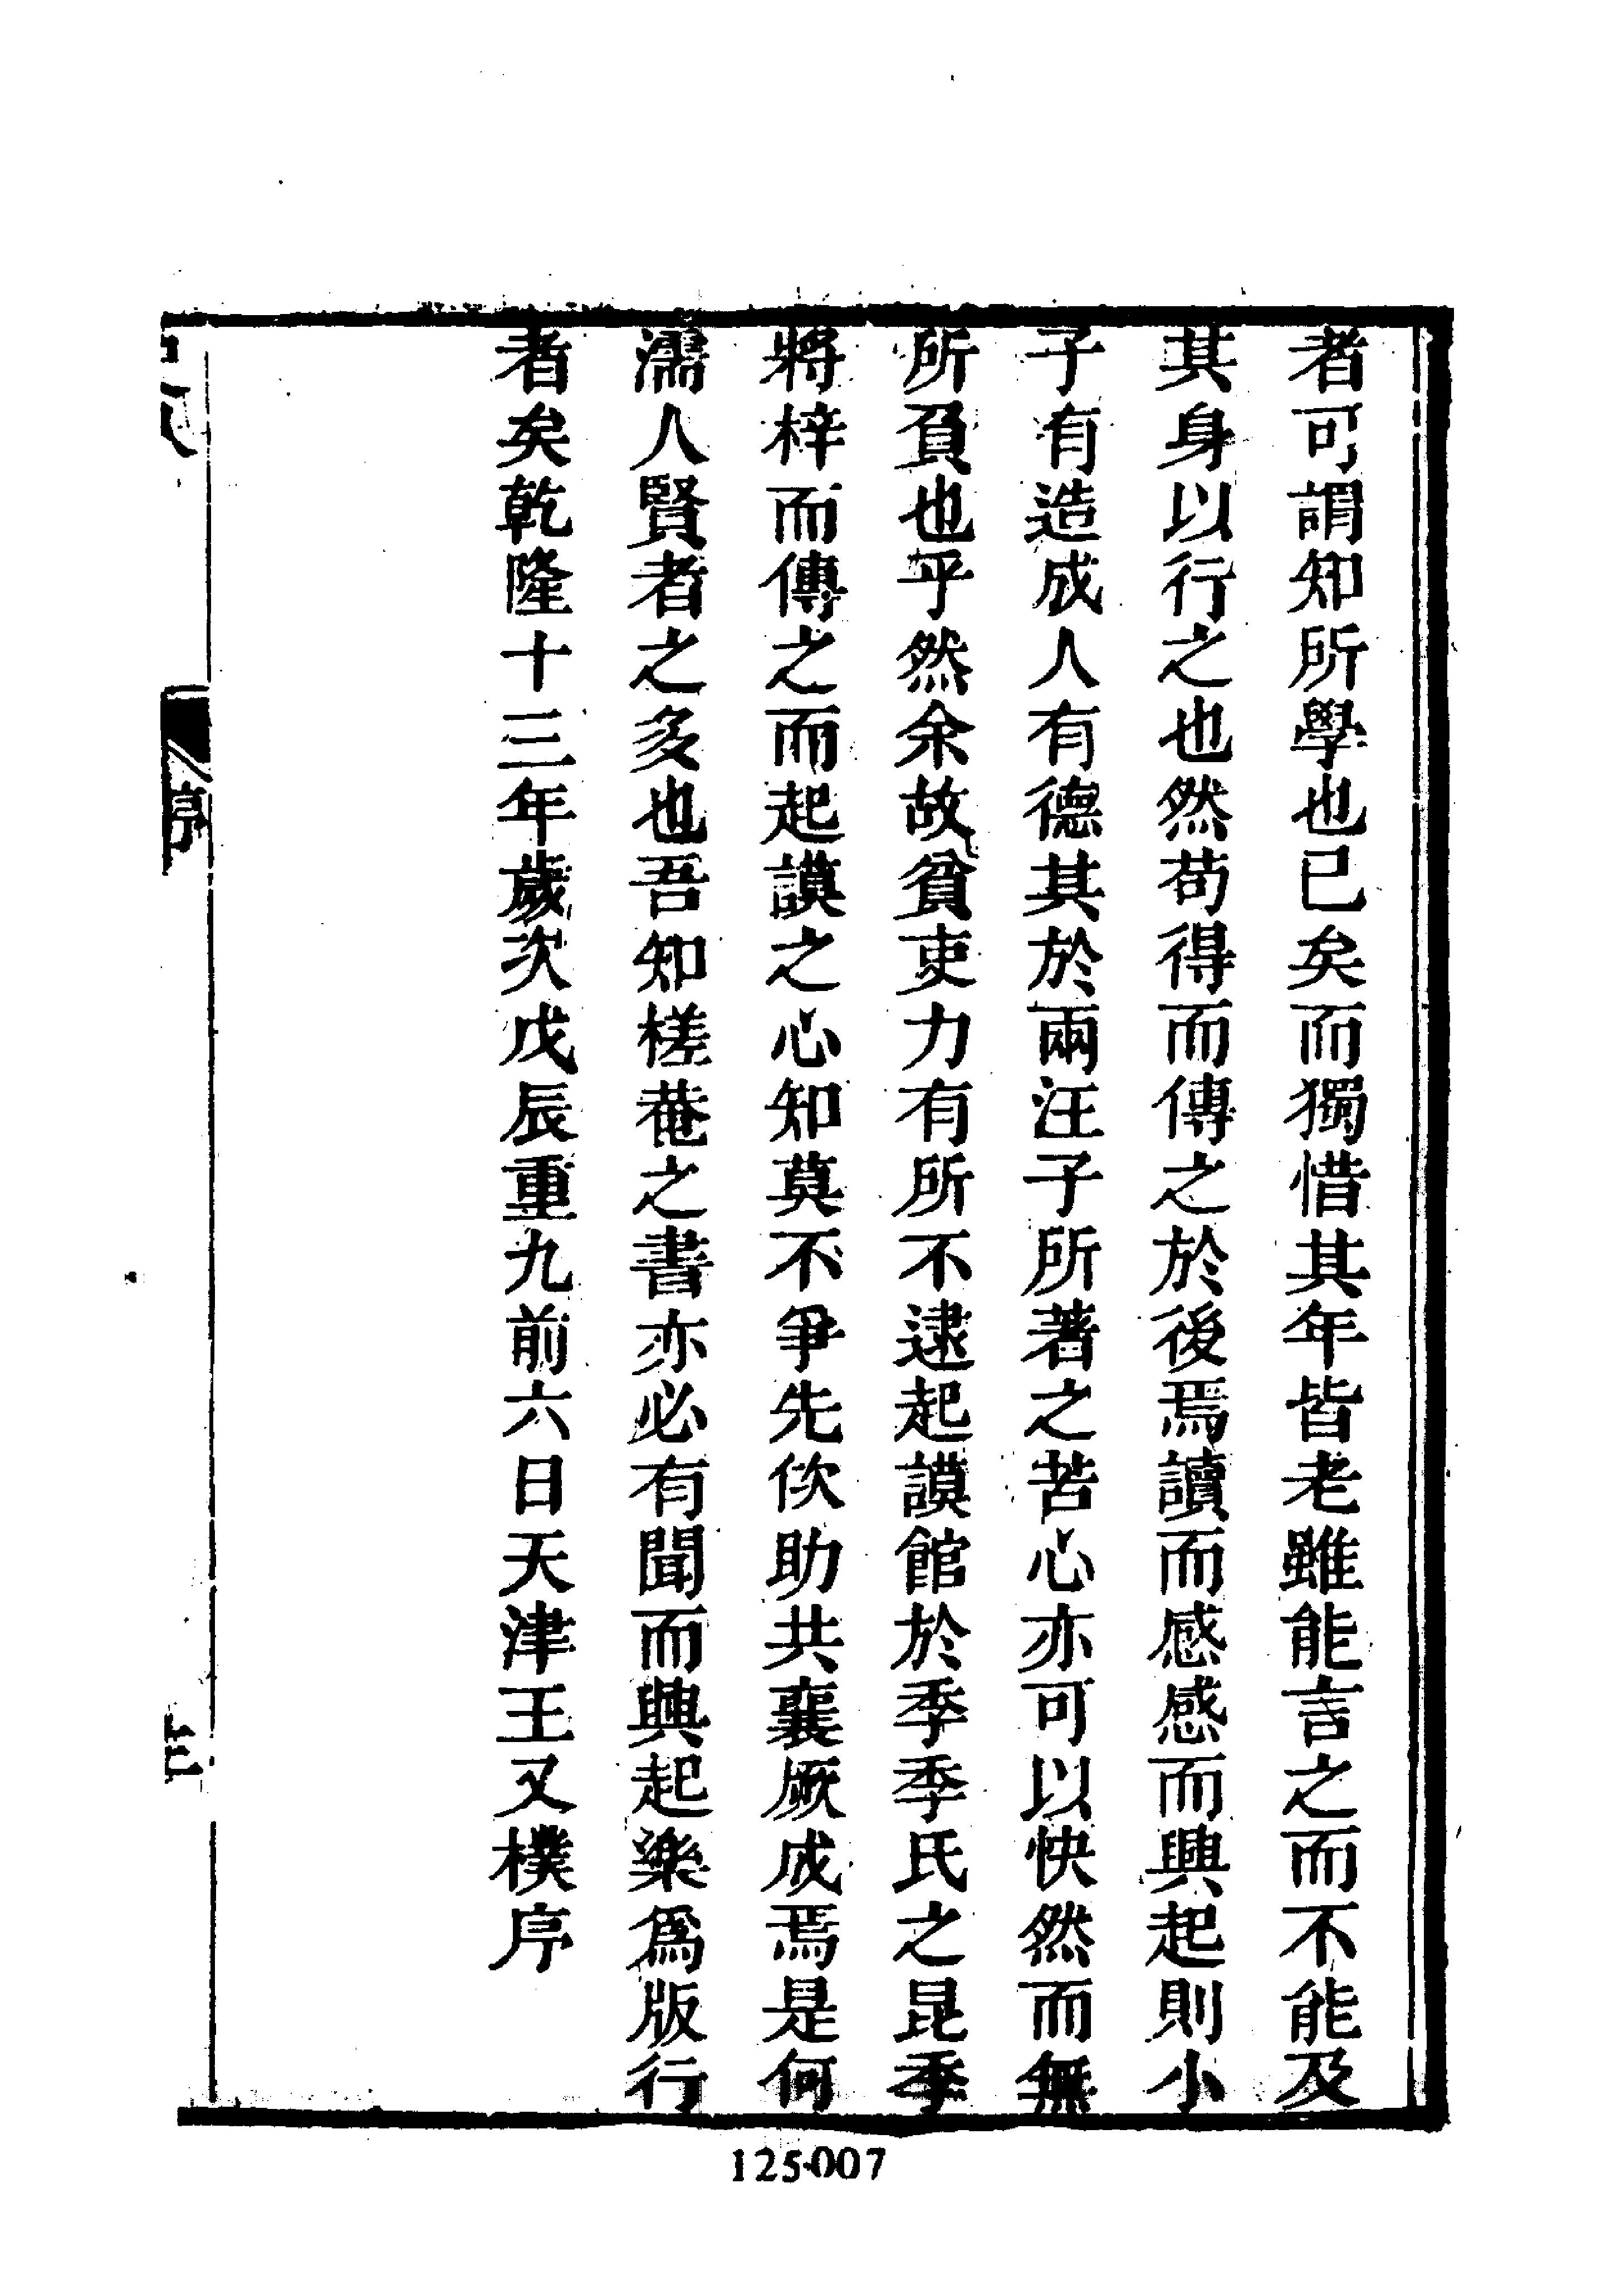 者可謂知所學也已矣而獨惜其年皆老雖能言之而不能及
其身以行之也然苟得而傳之於後焉讀而感感而興起則小
子有造成人有德其於兩汪子所著之苦心亦可以快然而無
所負也乎然余故貧吏力有所不逮起謨館於季季氏之昆季
將梓而傳之而起謨之心知莫不爭先佽助共襄厥成焉是何
濡人賢者之多也吾知槎菴之書亦必有聞而興起樂爲版行
者矣乾隆十三年歲次戊辰重九前六日天津王又樸序
序
125-007